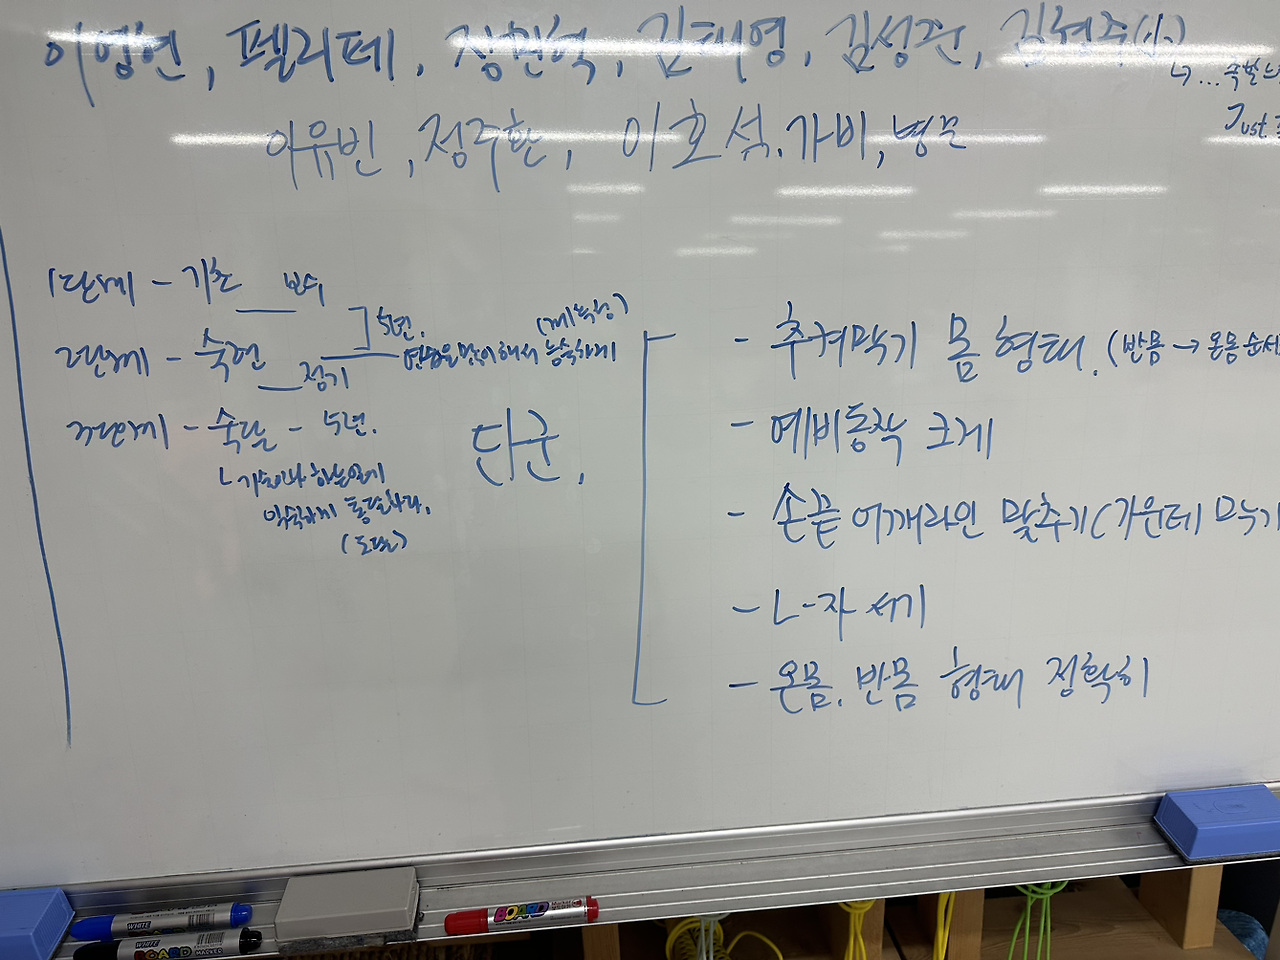 이영언, 펠리페, 장민혁, 김태영, 김성준, 김현주(1)
↳ ...
Just
이유빈, 정주환, 이호섭, 가비, 병문
1단계 - 기초
보수
5년.
2단계 - 숙련
연습을 많이 해서 능숙하게
정기
3단계 - 숙달 - 5년.
익숙하게 통달하다.
(도달)
단군.
- 추켜막기 몸 형태. (반몸 → 온몸 순서
- 예비동작 크게
- 손끝 어깨라인 맞추기 (가운데 모누기
- L-자 서기
- 온몸. 반몸 형태 정확히
WHITE
BOARD
WHITE
BOARD
MARKER
BOARD
Marker